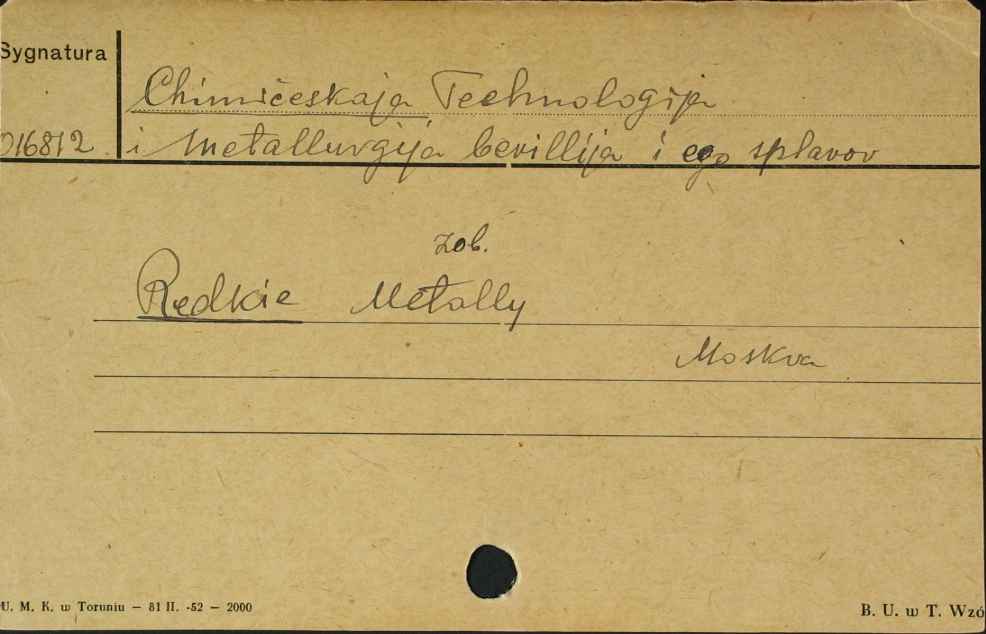 Sygnatura
Chimičeskaja Technologija
016812 i Metallurgija berillija i ego spłavov
zob.
Redkie Metally
Moskva
U. M. K. w Toruniu — 81 II. -52 — 2000
B. U. w T. Wzó